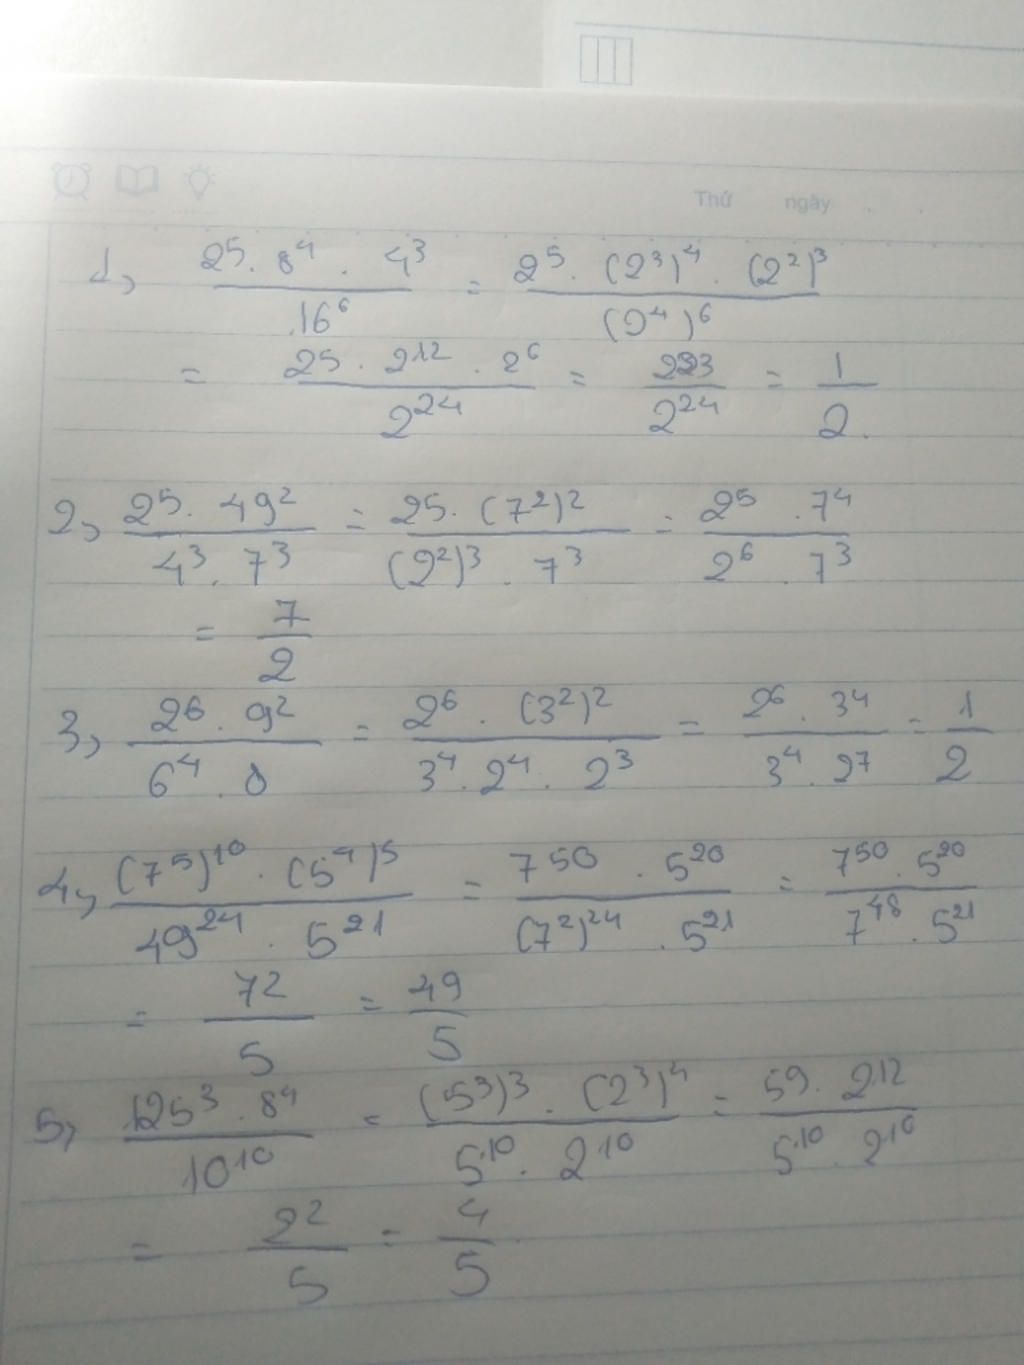 Thứ ngày
1, 2^5 . 8^4 . 4^3 / 16^6 = 2^5 . (2^3)^4 . (2^2)^3 / (2^4)^6
= 2^5 . 2^12 . 2^6 / 2^24 = 2^23 / 2^24 = 1 / 2.
2, 2^5 . 49^2 / 4^3 . 7^3 = 2^5 . (7^2)^2 / (2^2)^3 . 7^3 = 2^5 . 7^4 / 2^6 . 7^3
= 7 / 2
3, 2^6 . 9^2 / 6^4 . 8 = 2^6 . (3^2)^2 / 3^4 . 2^4 . 2^3 = 2^6 . 3^4 / 3^4 . 2^7 = 1 / 2
4, (7^5)^10 . (5^4)^5 / 49^24 . 5^21 = 7^50 . 5^20 / (7^2)^24 . 5^21 = 7^50 . 5^20 / 7^48 . 5^21
= 7^2 / 5 = 49 / 5
5, 125^3 . 8^4 / 10^10 = (5^3)^3 . (2^3)^4 / 5^10 . 2^10 = 5^9 . 2^12 / 5^10 . 2^10
= 2^2 / 5 = 4 / 5